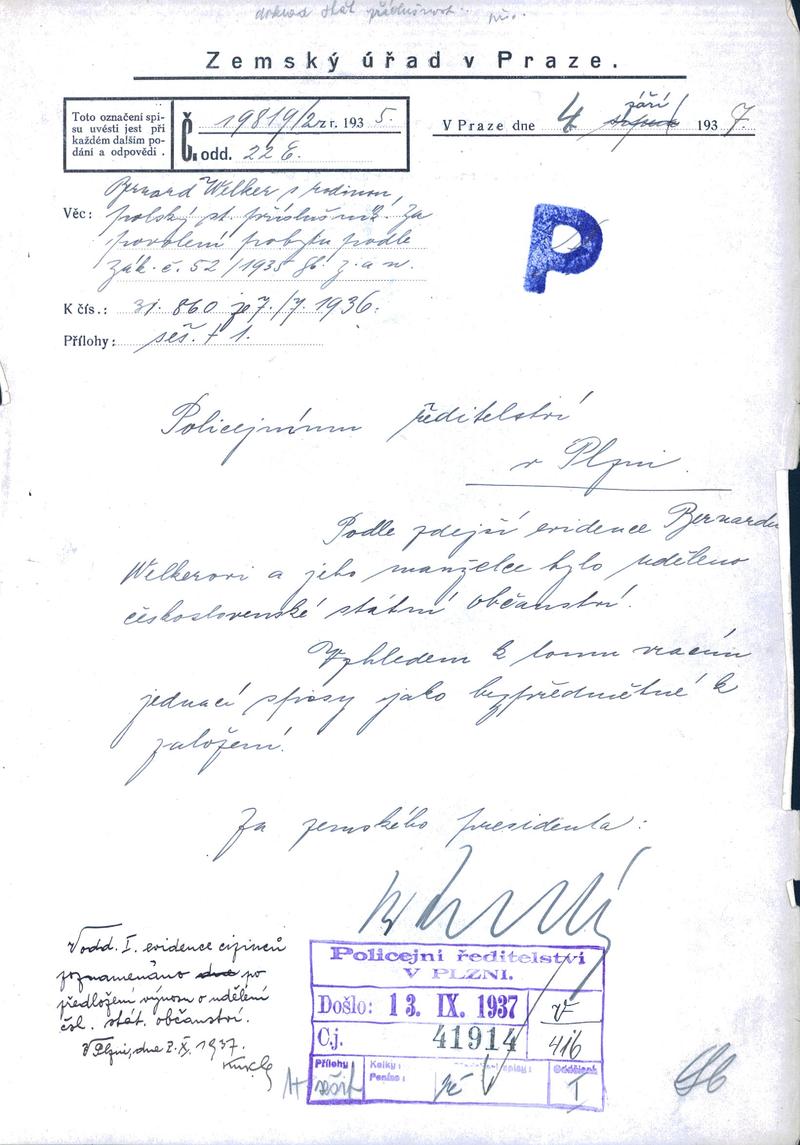 doklad stát. příslušnost
Zemský úřad v Praze.
Toto označení spi-
su uvésti jest při
každém dalším po-
dání a odpovědi.
Č. 19819/2 r. 1935.
odd. 22 E.
V Praze dne 4 září srpna 1937.
Věc: Bernard Welker s rodinou,
polský st. příslušník. Za
povolení pobytu podle
zák. č. 52/1935 Sb. z. a n.
K čís.: 31.860 ze 7./7. 1936.
Přílohy: seš. + 1.
P
Policejnímu ředitelství
v Plzni.
Podle zdejší evidence Bernardu
Welkerovi a jeho manželce bylo uděleno
československé státní občanství.
Vzhledem k tomu vracím
jednací spisy jako bezpředmětné k
založení.
Za zemského presidenta:
V odd. I. evidence cizinců
poznamenáno dne po
předložení výnosu o udělení
čsl. stát. občanství.
V Plzni, dne 2.X.1937.
Policejní ředitelství
V PLZNI.
Došlo: 13. IX. 1937
V
Č.j. 41914
416
Přílohy
Kolky:
Peníze:
spisy:
Oddělení
1+ sešit
I